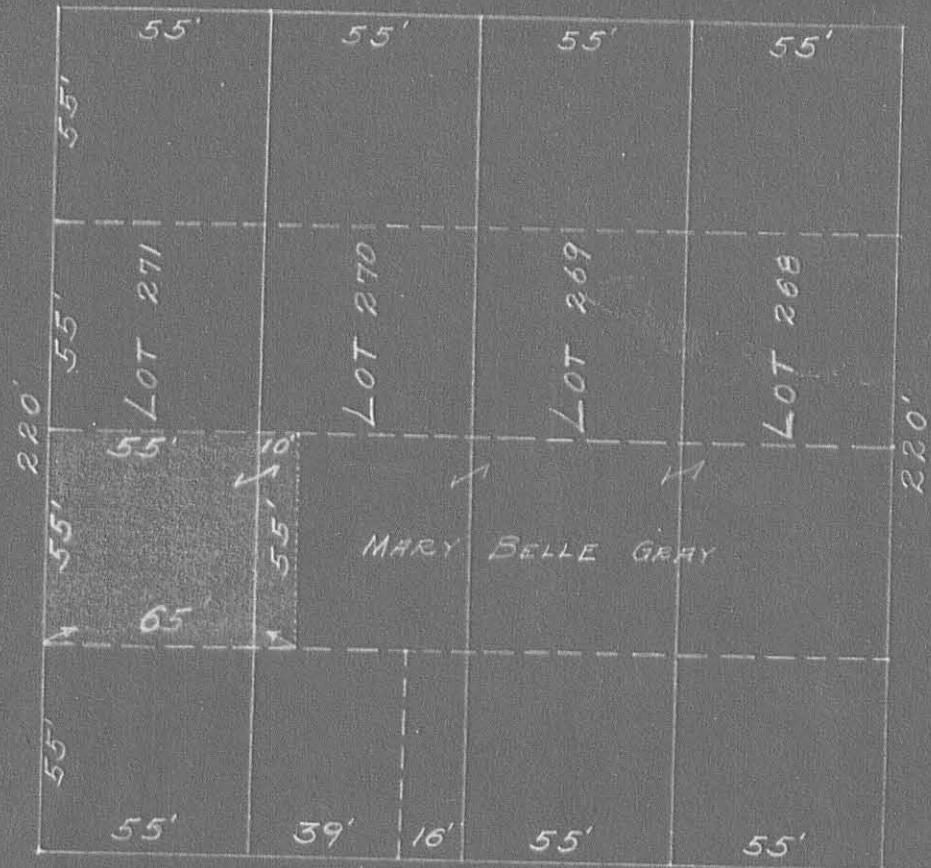 55' 55' 55' 55'
55'
LOT 271 LOT 270 LOT 269 LOT 268
55'
220' 220'
55' 10'
55' 55'
MARY BELLE GRAY
65'
55'
55' 39' 16' 55' 55'